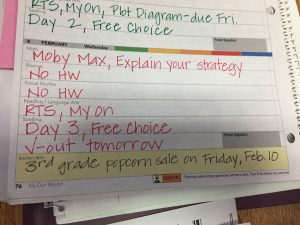 RTS, MyOn, Plot Diagram-due Fri.
Day 2, Free Choice
8 FEBRUARY Wednesday
Math
Moby Max, Explain your strategy
Science
No HW
Social Studies
No HW
Reading / Language Arts
RTS, My on
Spelling
Day 3, Free Choice
√-out tomorrow
3rd grade popcorn sale on Friday, Feb. 10
76